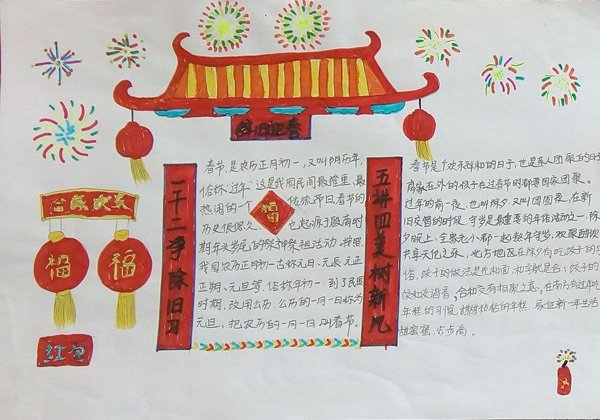 迎春
一干二净除旧习
五讲四美树新风
合家欢乐
福
福
红包
福
春节,是农历正月初一,又叫阴历年,
俗称"过年"。这是我国民间最隆重、最
热闹的一个传统节日。春节的
历史很悠久,它起源于殷商时
期年头岁尾的祭神祭祖活动。按照
我国农历正月初一古称元日、元辰、元正、
正朔、元旦等,俗称年初一,到了民国
时期,改用公历,公历的一月一日称为
元旦,把农历的一月一日叫春节。
春节是个欢乐祥和的日子,也是亲人团聚的日子
离家在外的孩子在过春节时都要回家团聚。
过年的前一夜,也叫除夕,又叫团圆夜,在新
旧交替的时候,守岁是最重要的年俗活动之一,除
夕晚上,全家老小都一起熬年守岁,欢聚酣饮
共享天伦之乐,北方地区在除夕有吃饺子的习
俗,饺子的做法是先和面,和字就是合;饺子的
饺和交谐音,合和交有相聚之意,在南方有过年吃
年糕的习惯,甜甜粘粘的年糕,象征新一年生活
甜蜜蜜,步步高。